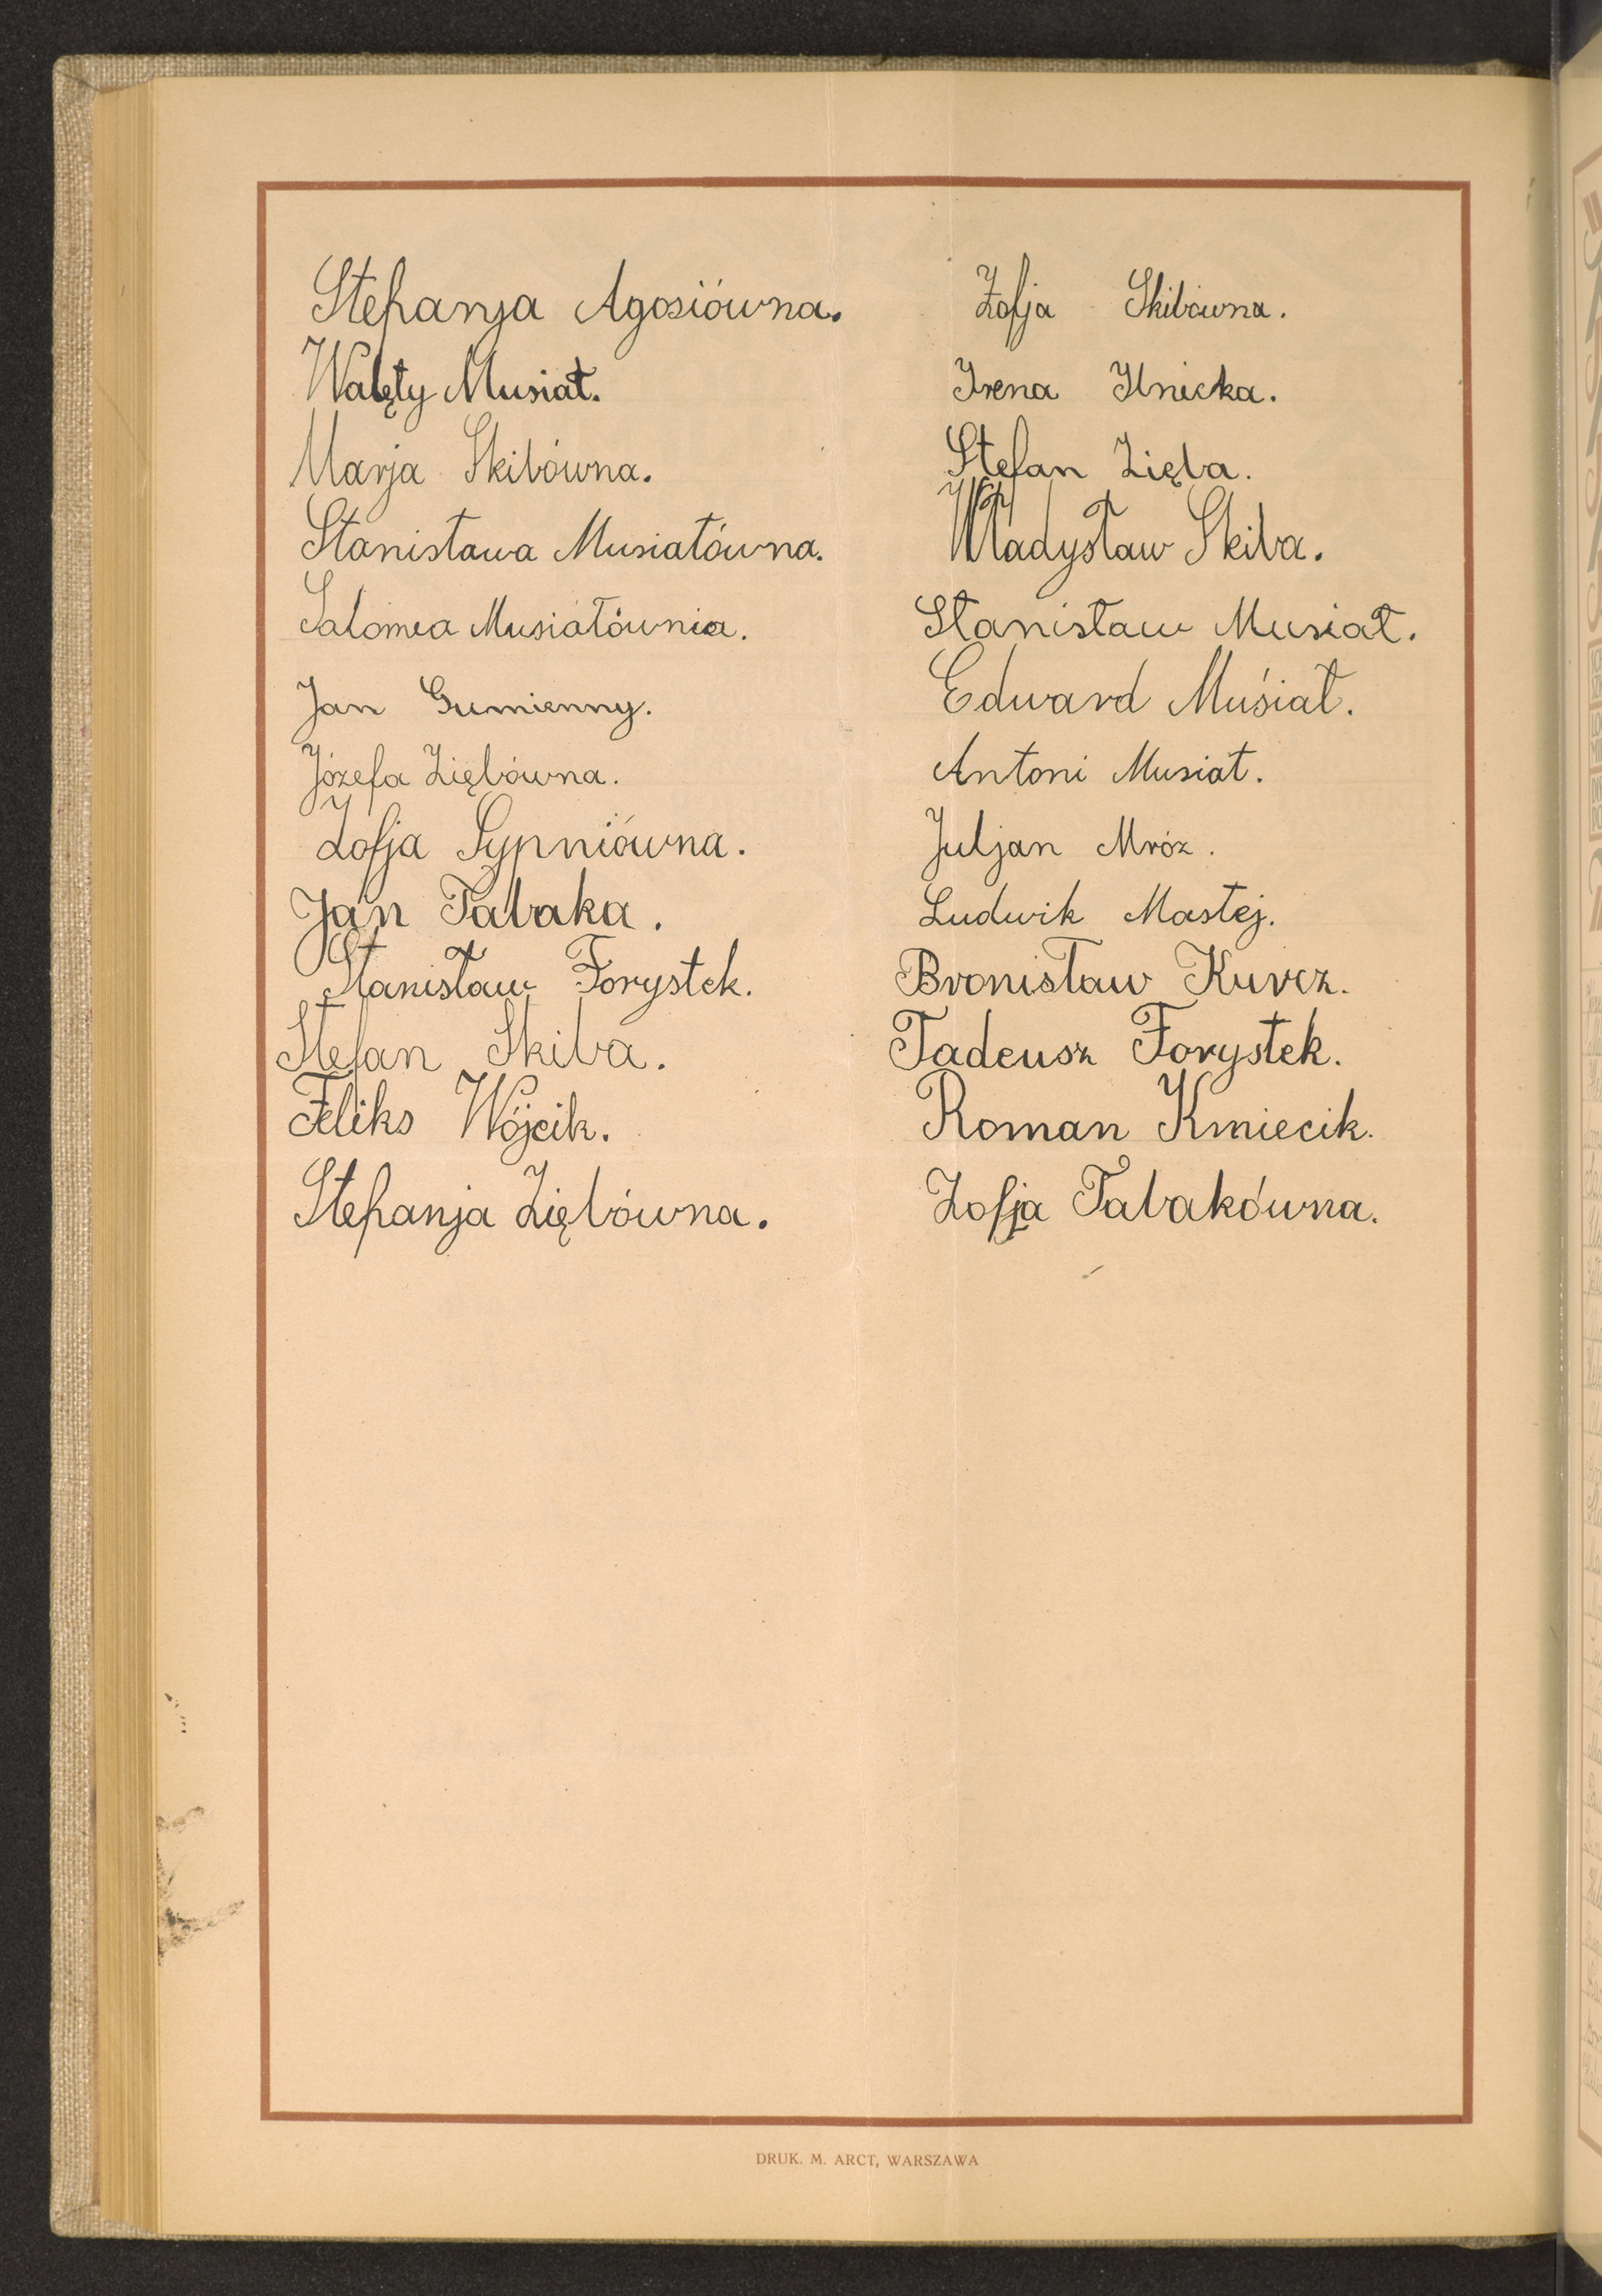 Stefanja Agosiówna.
Walęty Musiał.
Marja Skibówna.
Stanisława Musiałówna.
Salomea Musiałównia.
Jan Gumienny.
Józefa Ziębówna.
Zofja Sypniówna.
Jan Tabaka.
Stanisław Forystek.
Stefan Skiba.
Feliks Wójcik.
Stefanja Ziębówna.
Zofja Skibówna.
Irena Ilnicka.
Stefan Zięba.
Władysław Skiba.
Stanisław Musiał.
Edward Muśiał.
Antoni Musiał.
Juljan Mróz.
Ludwik Mastej.
Bronisław Kurcz.
Tadeusz Forystek.
Roman Kmiecik.
Zofja Tabakówna.
DRUK. M. ARCT, WARSZAWA